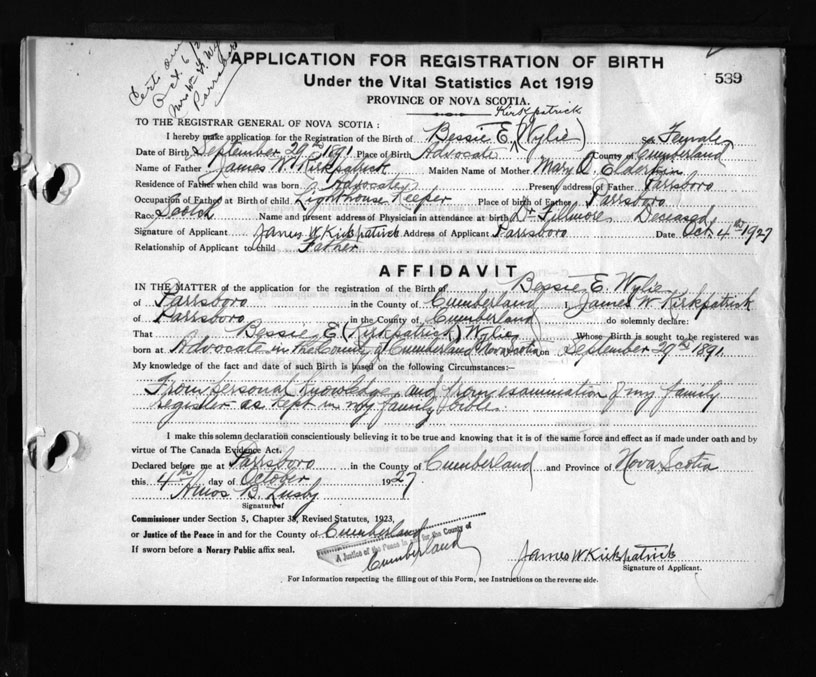 APPLICATION FOR REGISTRATION OF BIRTH
Under the Vital Statistics Act 1919
539
PROVINCE OF NOVA SCOTIA.
Parrsboro
Kirkpatrick
TO THE REGISTRAR GENERAL OF NOVA SCOTIA:
I hereby make application for the Registration of the Birth of Bessie E. (Wylie) Sex Female
Date of Birth September 29th 1891 Place of Birth Advocate County of Cumberland
Name of Father James W. Kirkpatrick Maiden Name of Mother Mary A. Elderkin
Residence of Father when child was born Advocate Present address of Father Parrsboro
Occupation of Father at Birth of child Lighthouse Keeper Place of birth of Father Parrsboro
Race Scotch Name and present address of Physician in attendance at birth Dr Fillmore Deceased
Signature of Applicant James W Kirkpatrick Address of Applicant Parrsboro Date Oct. 4th 1927
Relationship of Applicant to child Father
AFFIDAVIT
IN THE MATTER of the application for the registration of the Birth of Bessie E. Wylie
of Parrsboro in the County of Cumberland I, James W Kirkpatrick
of Parrsboro in the County of Cumberland do solemnly declare:
That Bessie E (Kirkpatrick) Wylie Whose Birth is sought to be registered was
born at Advocate in the County of Cumberland Nova Scotia on September 29th 1891
My knowledge of the fact and date of such Birth is based on the following Circumstances:—
From personal knowledge, and from examination of my family
register as kept in my family bible.
I make this solemn declaration conscientiously believing it to be true and knowing that it is of the same force and effect as if made under oath and by
virtue of The Canada Evidence Act.
Declared before me at Parrsboro in the County of Cumberland and Province of Nova Scotia
this 4th day of October 1927
Amos B. Lusby
Signature of
Commissioner under Section 5, Chapter 38, Revised Statutes, 1923,
or Justice of the Peace in and for the County of Cumberland
A Justice of the Peace in and for the County of
If sworn before a Norary Public affix seal.
Cumberland
James W Kirkpatrick
Signature of Applicant.
For Information respecting the filling out of this Form, see Instructions on the reverse side.